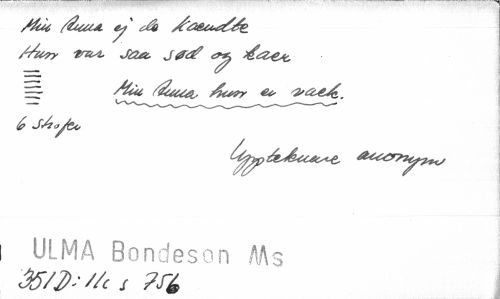 Min Anna ej de kaendte
Hun var saa sød og kaer
Min Anna hun er vaek.
6 strofer
Upptecknare anonym
ULMA Bondeson Ms
351 D: 11c s 756